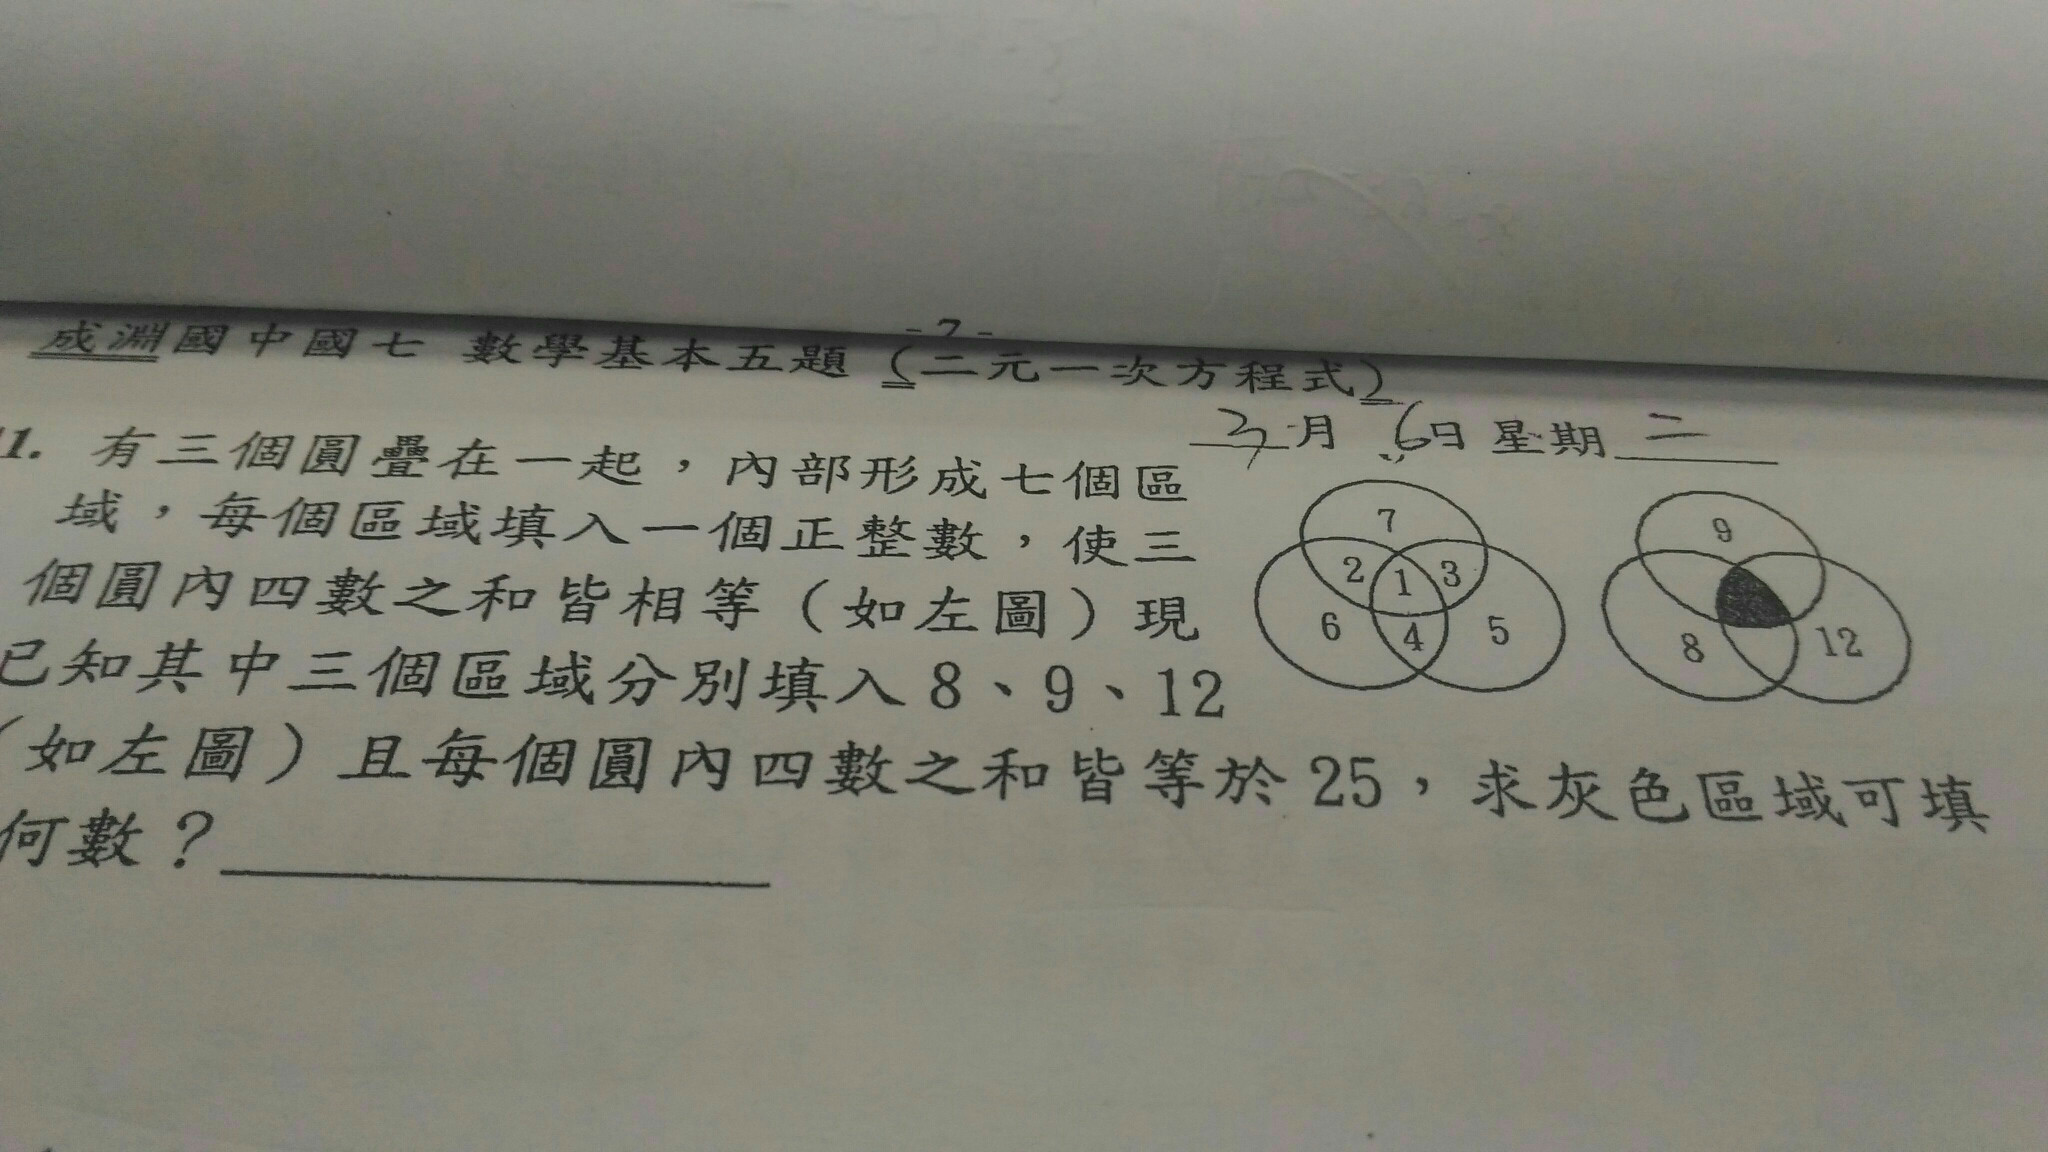 -7-
成淵國中國七 數學基本五題 (二元一次方程式)
3月 6日 星期二
1. 有三個圓疊在一起，內部形成七個區
域，每個區域填入一個正整數，使三
個圓內四數之和皆相等（如左圖）現
已知其中三個區域分別填入8、9、12
（如左圖）且每個圓內四數之和皆等於25，求灰色區域可填
何數？
7
2 1 3
6 4 5
9
8 12